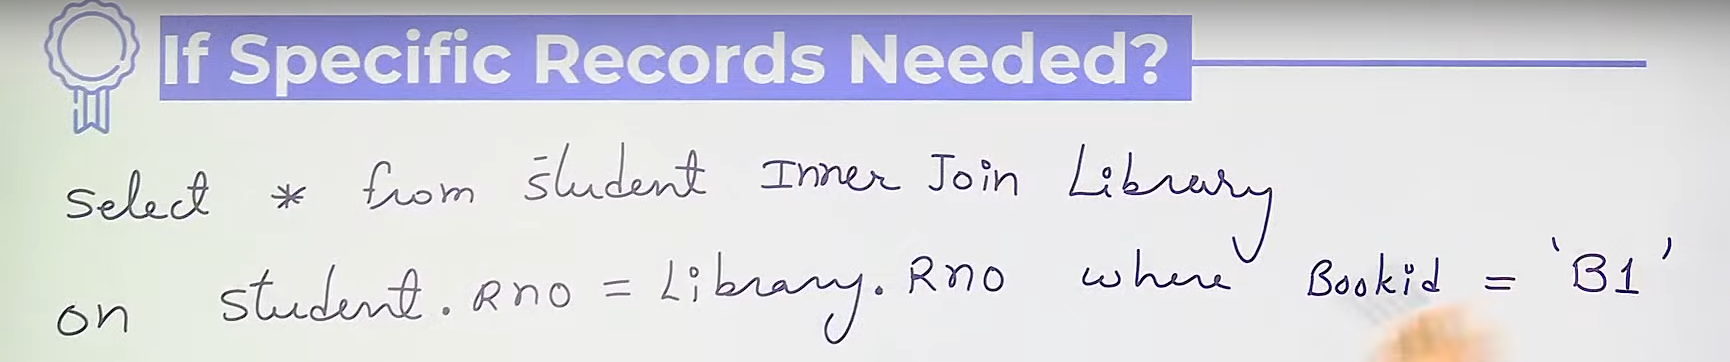 If Specific Records Needed?
Select * from student Inner Join Library
on student.Rno = Library.Rno where Bookid = 'B1'